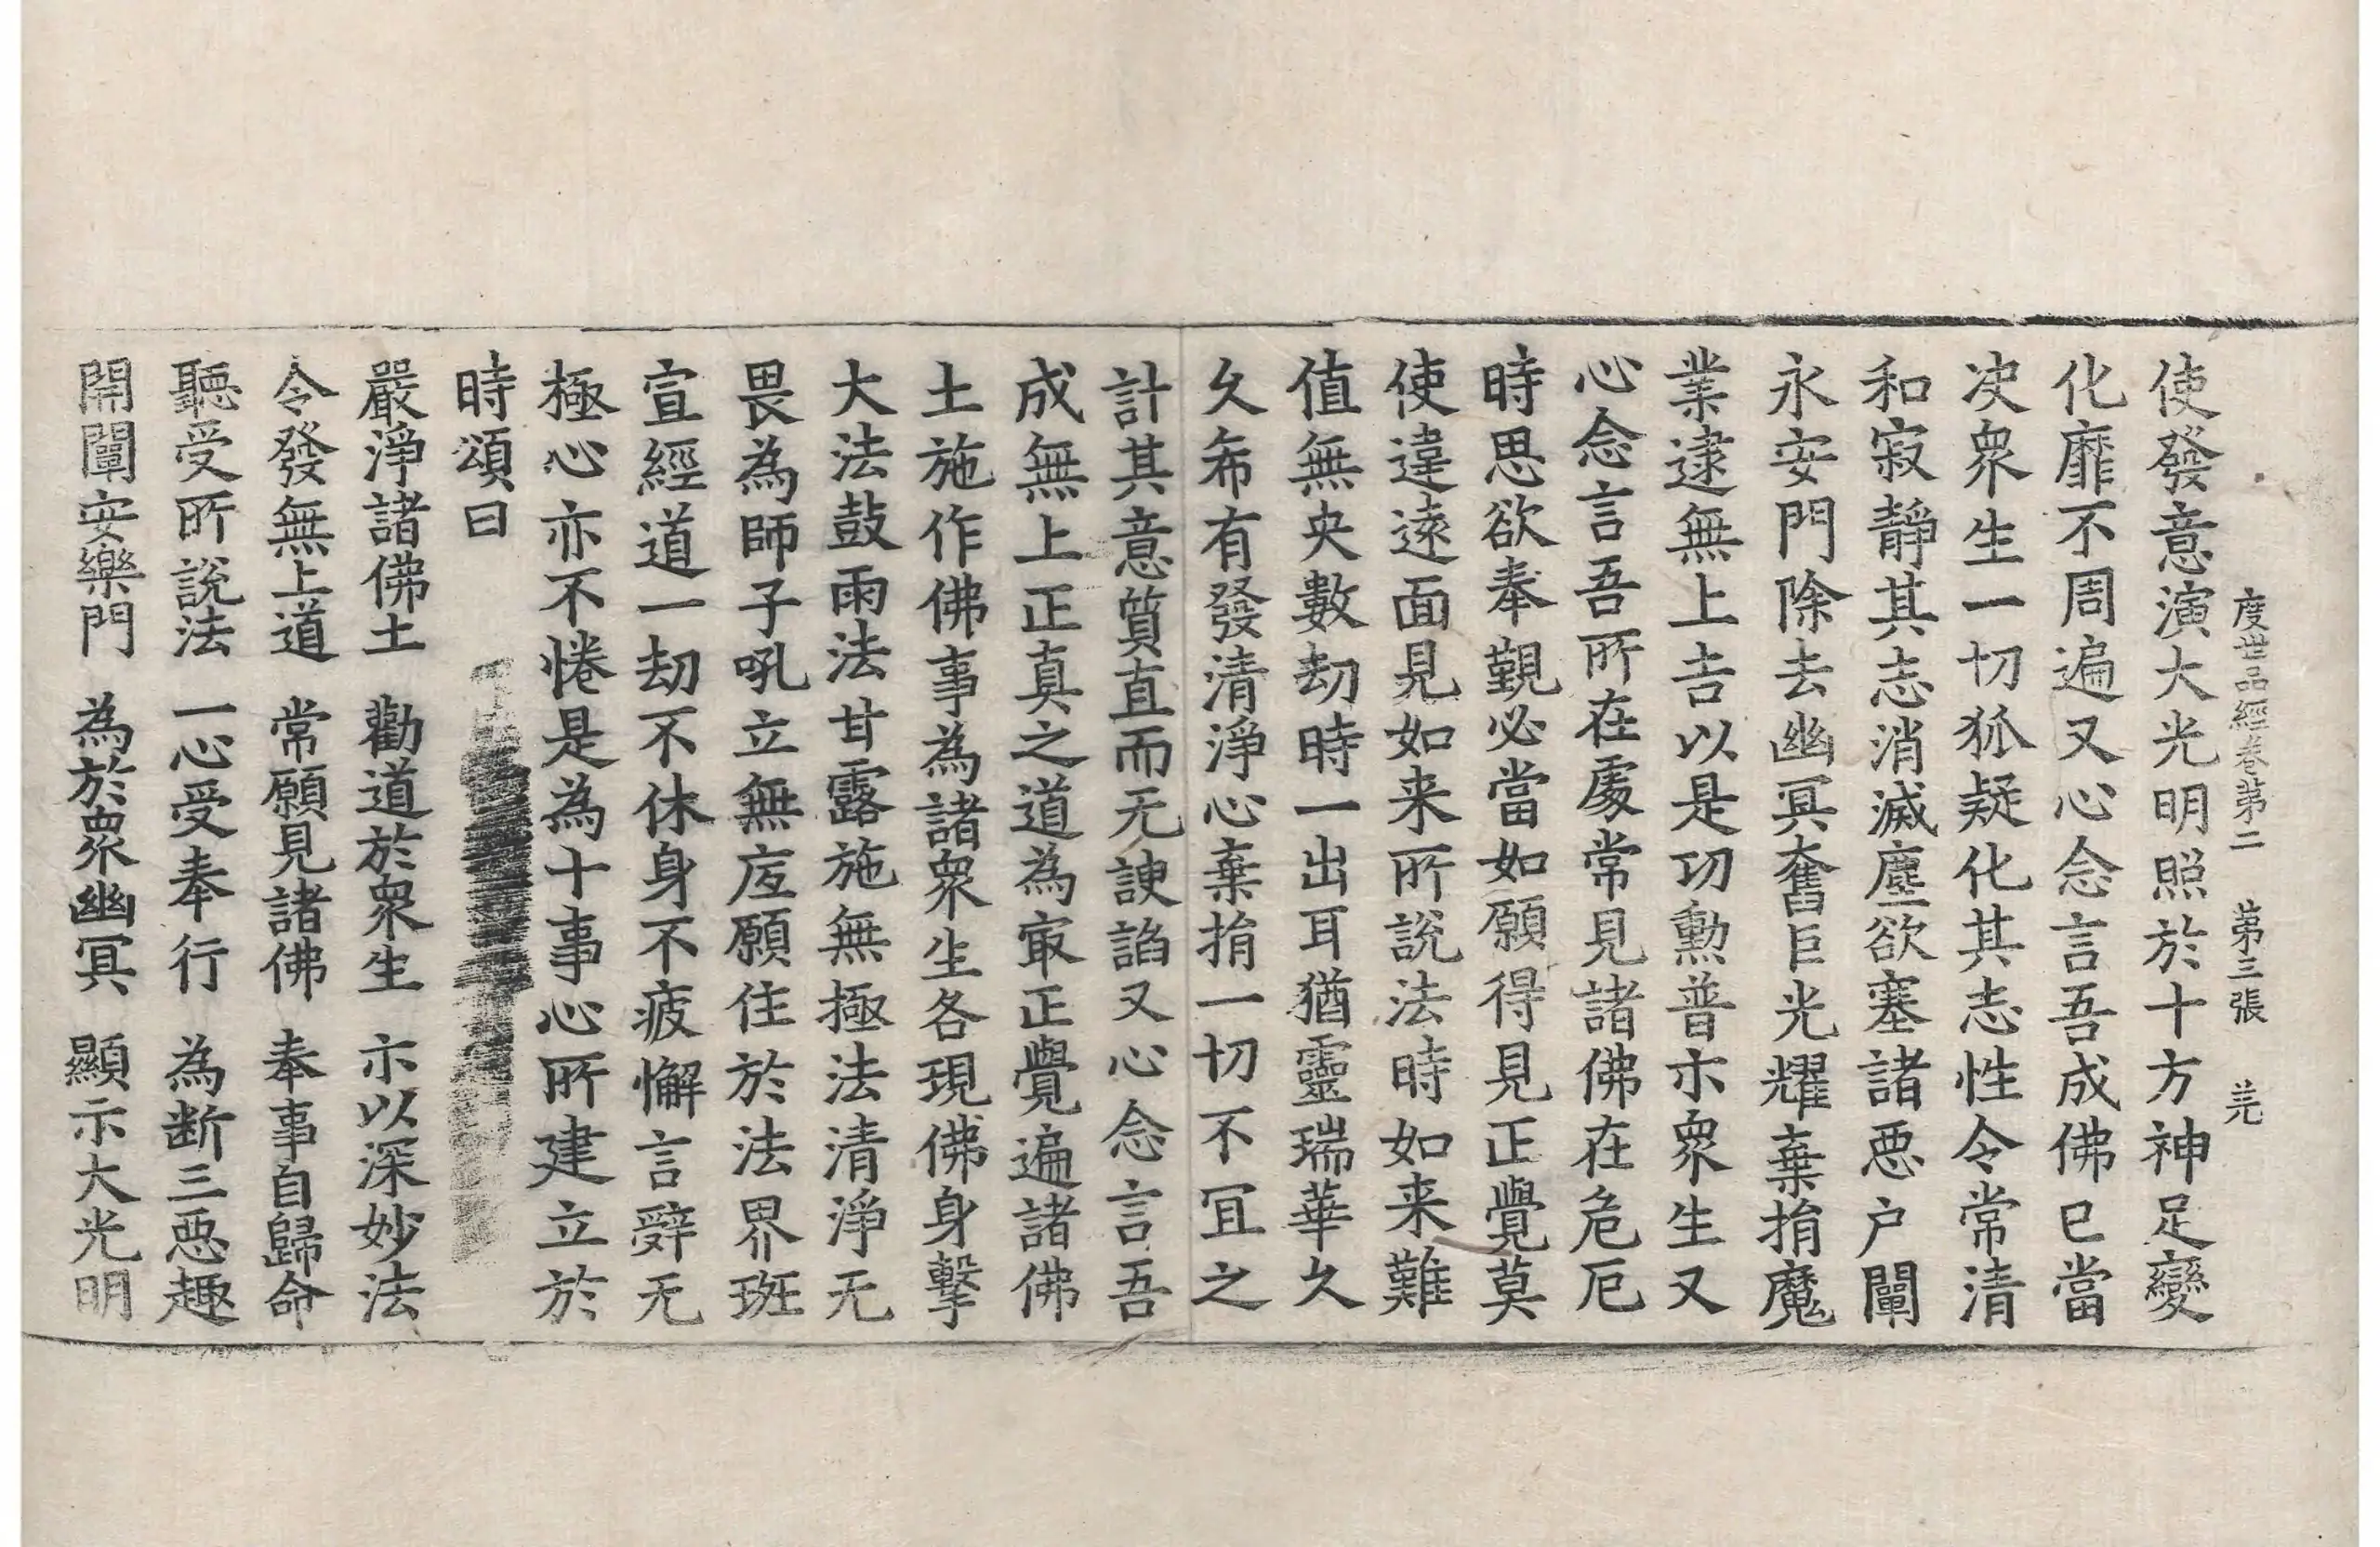 度世品經卷第二 第三張 羌
使發意演大光明照於十方神足變
化靡不周遍又心念言吾成佛已當
决衆生一切狐疑化其志性令常清
和寂靜其志消滅塵欲塞諸惡户闡
永安門除去幽冥奮巨光耀棄捐魔
業逮無上吉以是功勲普示衆生又
心念言吾所在處常見諸佛在危厄
時思欲奉覲必當如願得見正覺莫
使違遠面見如来所說法時如来難
值無央數劫時一出耳猶靈瑞華久
久希有發清淨心棄捐一切不冝之
計其意質直而无諛諂又心念言吾
成無上正真之道為㝡正覺遍諸佛
土施作佛事為諸衆生各現佛身擊
大法鼓雨法甘露施無極法清淨无
畏為師子吼立無疘願住於法界班
宣經道一劫不休身不疲懈言辤无
極心亦不惓是為十事心所建立於
時頌曰
嚴淨諸佛土 勸道於衆生 示以深妙法
令發無上道 常願見諸佛 奉事自歸命
聽受所說法 一心受奉行 為断三惡趣
開闡安樂門 為於衆幽冥 顯示大光明